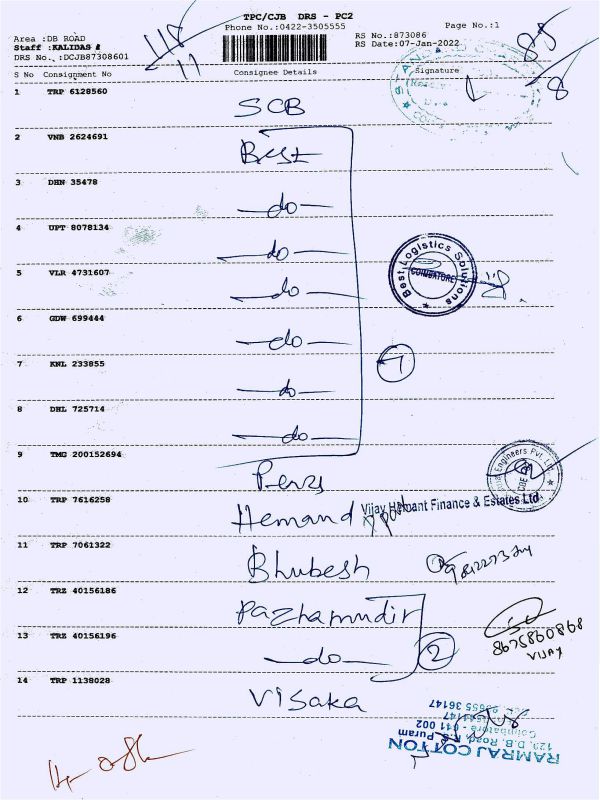 TPC/CJB DRS - PC2
Phone No.:0422-3505555
Page No.:1
Area :DB ROAD
RS No.:873086
Staff :KALIDAS
RS Date:07-Jan-2022
DRS No.:DCJB87308601
S No Consignment No Consignee Details Signature
118
11
88
8
1 TRP 6128560 SCB
2 VNB 2624691 Best
3 DHN 35478 —do—
4 UPT 8078134 —do—
5 VLR 4731607 —do—
Best Logistics Solutions
COIMBATORE
6 GDW 699444 —do—
7 KNL 233855 —do—
7
8 DHL 725714 —do—
9 TMG 200152694
Engineers Pvt. Ltd.
10 TRP 7616258 Hemand
Vijay Hemant Finance & Estates Ltd
11 TRP 7061322 Bhubesh
12 TRZ 40156186 Pazhamudir
13 TRZ 40156196 —do—
2
8675860868
VIJAY
14 TRP 1138028 Visaka
RAMRAJ COTTON
123, D.B. Road, R.S. Puram
Coimbatore - 641 002
36147